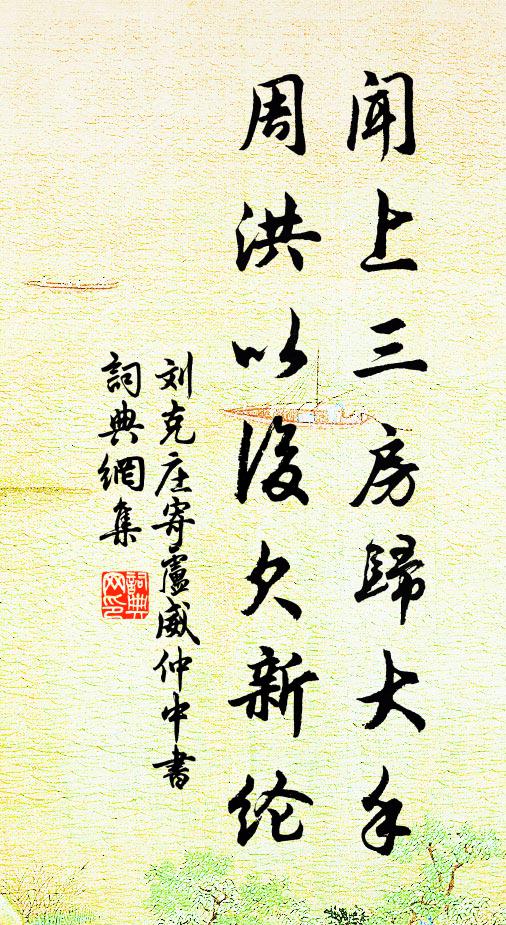 闻上三房歸大手
周洪以後欠新纶
刘克庄寄盧威仲中書
詞典網集
詞典网印